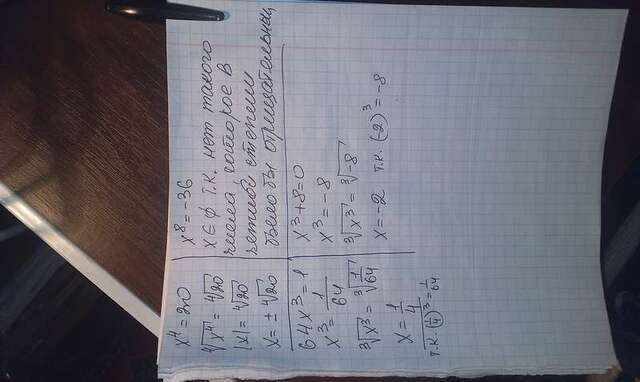 x⁴=20
⁴√x⁴ = ⁴√20
|x| = ⁴√20
x = ± ⁴√20
x⁸ = -36
x ∈ ∅ т.к. нет такого
числа которое в
четной степени
было бы отрицательным
64x³ = 1
x³ = 1/64
³√x³ = ³√1/64
x = 1/4
т.к. (1/4)³ = 1/64
x³+8=0
x³ = -8
³√x³ = ³√-8
x = -2 т.к. (-2)³ = -8